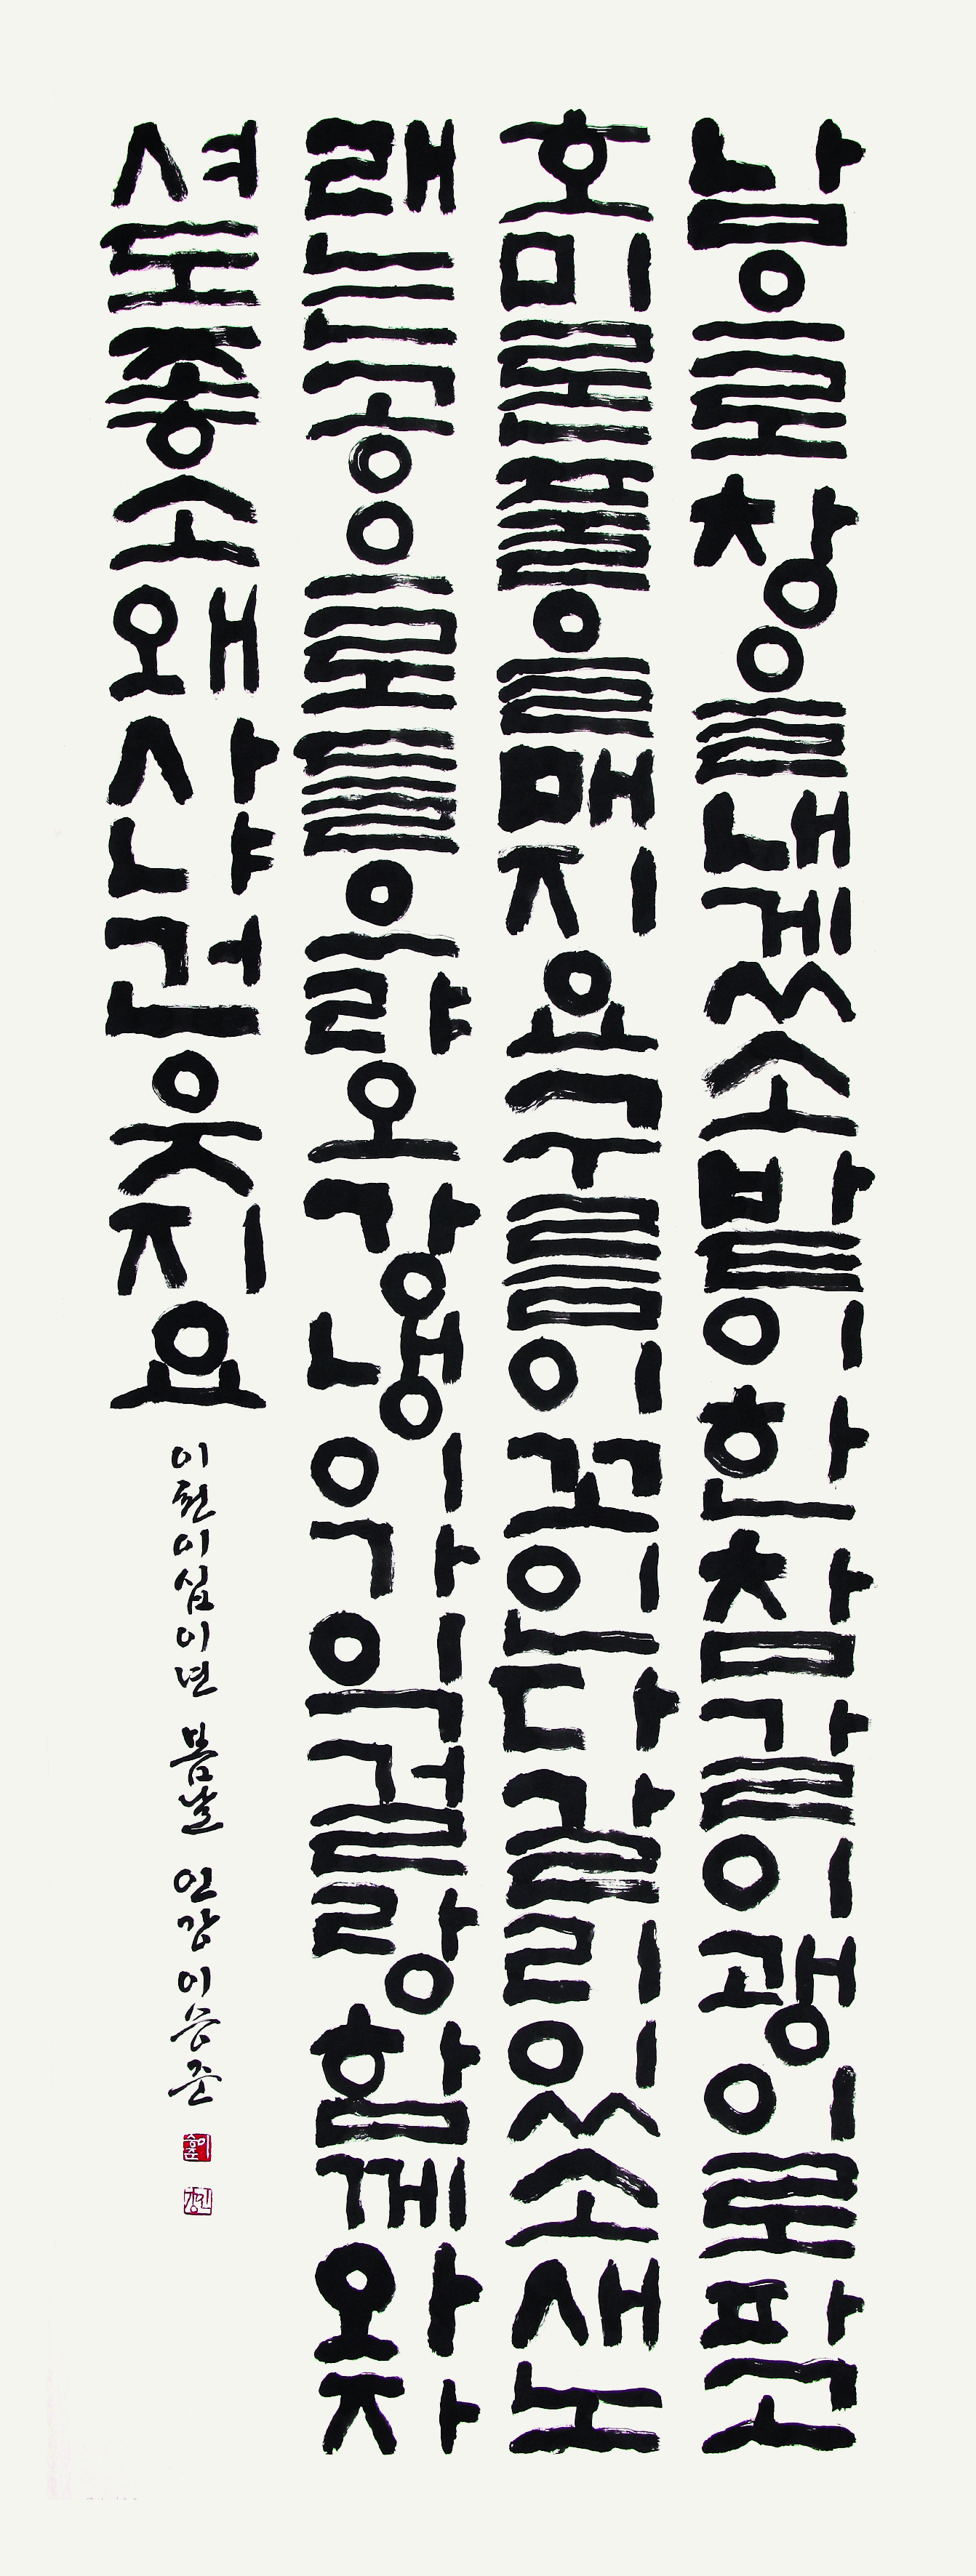 남으로창을내겠소밭이한참갈이괭이로파고
호미론풀을매지요구름이꼬인다갈리있소새노
래는공으로들으랴오강냉이가익걸랑함께와자
셔도좋소왜사냐건웃지요
이천이십이년 봄날 인강 이승준
이승준
인강